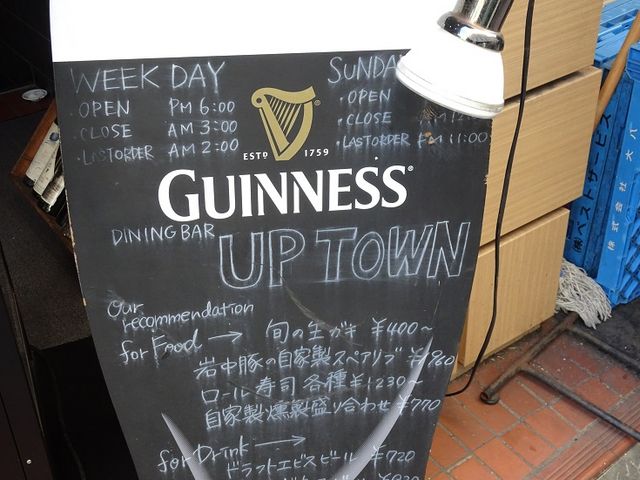 WEEK DAY
OPEN PM 6:00
CLOSE AM 3:00
LASTORDER AM 2:00
SUNDA
OPEN
CLOSE
LASTORDER PM 11:00
ESTD 1759
GUINNESS
DINING BAR
UP TOWN
Our
recommendation
for Food → 旬の生ガキ ¥400~
岩中豚の自家製スペアリブ ¥960
ロール寿司 各種 ¥1230~
自家製燻製盛り合わせ ¥770
for Drink →
ドラフトエビスビール ¥720
㈱ベストサービス
株式会社